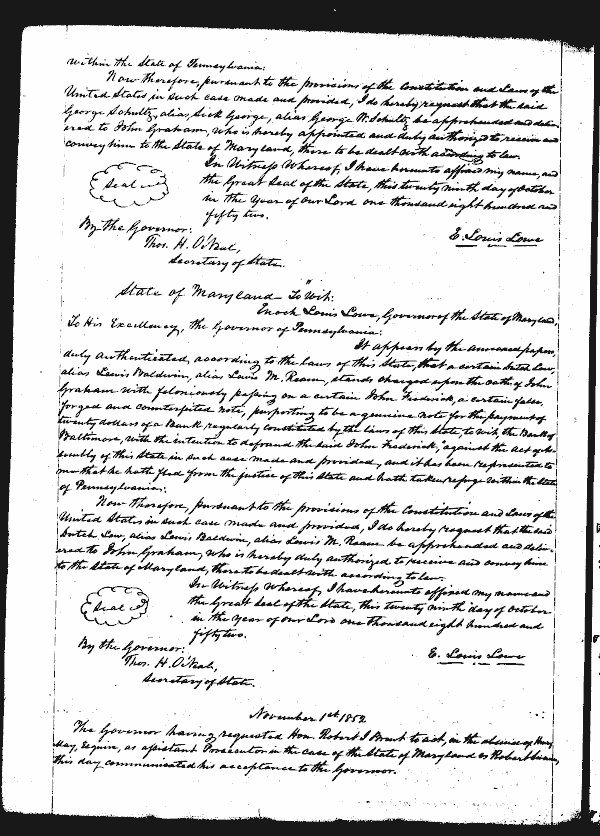 within the State of Pennsylvania:
Now therefore, pursuant to the provisions of the Constitution and Laws of the
United States in such case made and provided, I do hereby request that the said
George Schultz, alias, Sick George, alias George W. Schultz be apprehended and deliv-
ered to John Graham, who is hereby appointed and duly authorized to receive and
convey him to the State of Maryland, there to be dealt with according to law.
In Witness Whereof, I have hereunto affixed my name, and
the Great Seal of the State, this twenty ninth day of October
in the Year of our Lord one thousand eight hundred and
fifty two.
Seal
E. Louis Lowe
By the Governor:
Thos. H. O'Neal,
Secretary of State.
State of Maryland To Wit:
Enoch Louis Lowe, Governor of the State of Maryland,
To His Excellency, the Governor of Pennsylvania:
It appears by the annexed papers,
duly authenticated, according to the laws of this State, that a certain Dutch Lew,
alias Lewis Baldwin, alias Lewis M. Ream, stands charged upon the oath of John
Graham with feloniously passing on a certain John Frederick, a certain false,
forged and counterfeited note, purporting to be a genuine note for the payment of
twenty dollars of a Bank regularly constituted by the laws of this State, to wit, the Bank of
Baltimore, with the intention to defraud the said John Frederick, against the Act of As-
sembly of this State in such case made and provided, and it has been represented to
me that he hath fled from the justice of this State and hath taken refuge within the State
of Pennsylvania:
Now therefore, pursuant to the provisions of the Constitution and Laws of the
United States in such case made and provided, I do hereby request that the said
Dutch Lew, alias Lewis Baldwin, alias Lewis M. Ream be apprehended and deliv-
ered to John Graham, who is hereby duly authorized to receive and convey him
to the State of Maryland, there to be dealt with according to law.
In Witness Whereof, I have hereunto affixed my name and
the Great Seal of the State, this twenty ninth day of October
in the Year of our Lord one thousand eight hundred and
fifty two.
Seal
E. Louis Lowe
By the Governor:
Thos. H. O'Neal,
Secretary of State.
November 1st 1852
The Governor having requested Hon. Robert J Brent to act, in the absence of Henry
May, Esquire, as assistant Prosecutor in the case of the State of Maryland vs Robert
this day communicated his acceptance to the Governor.